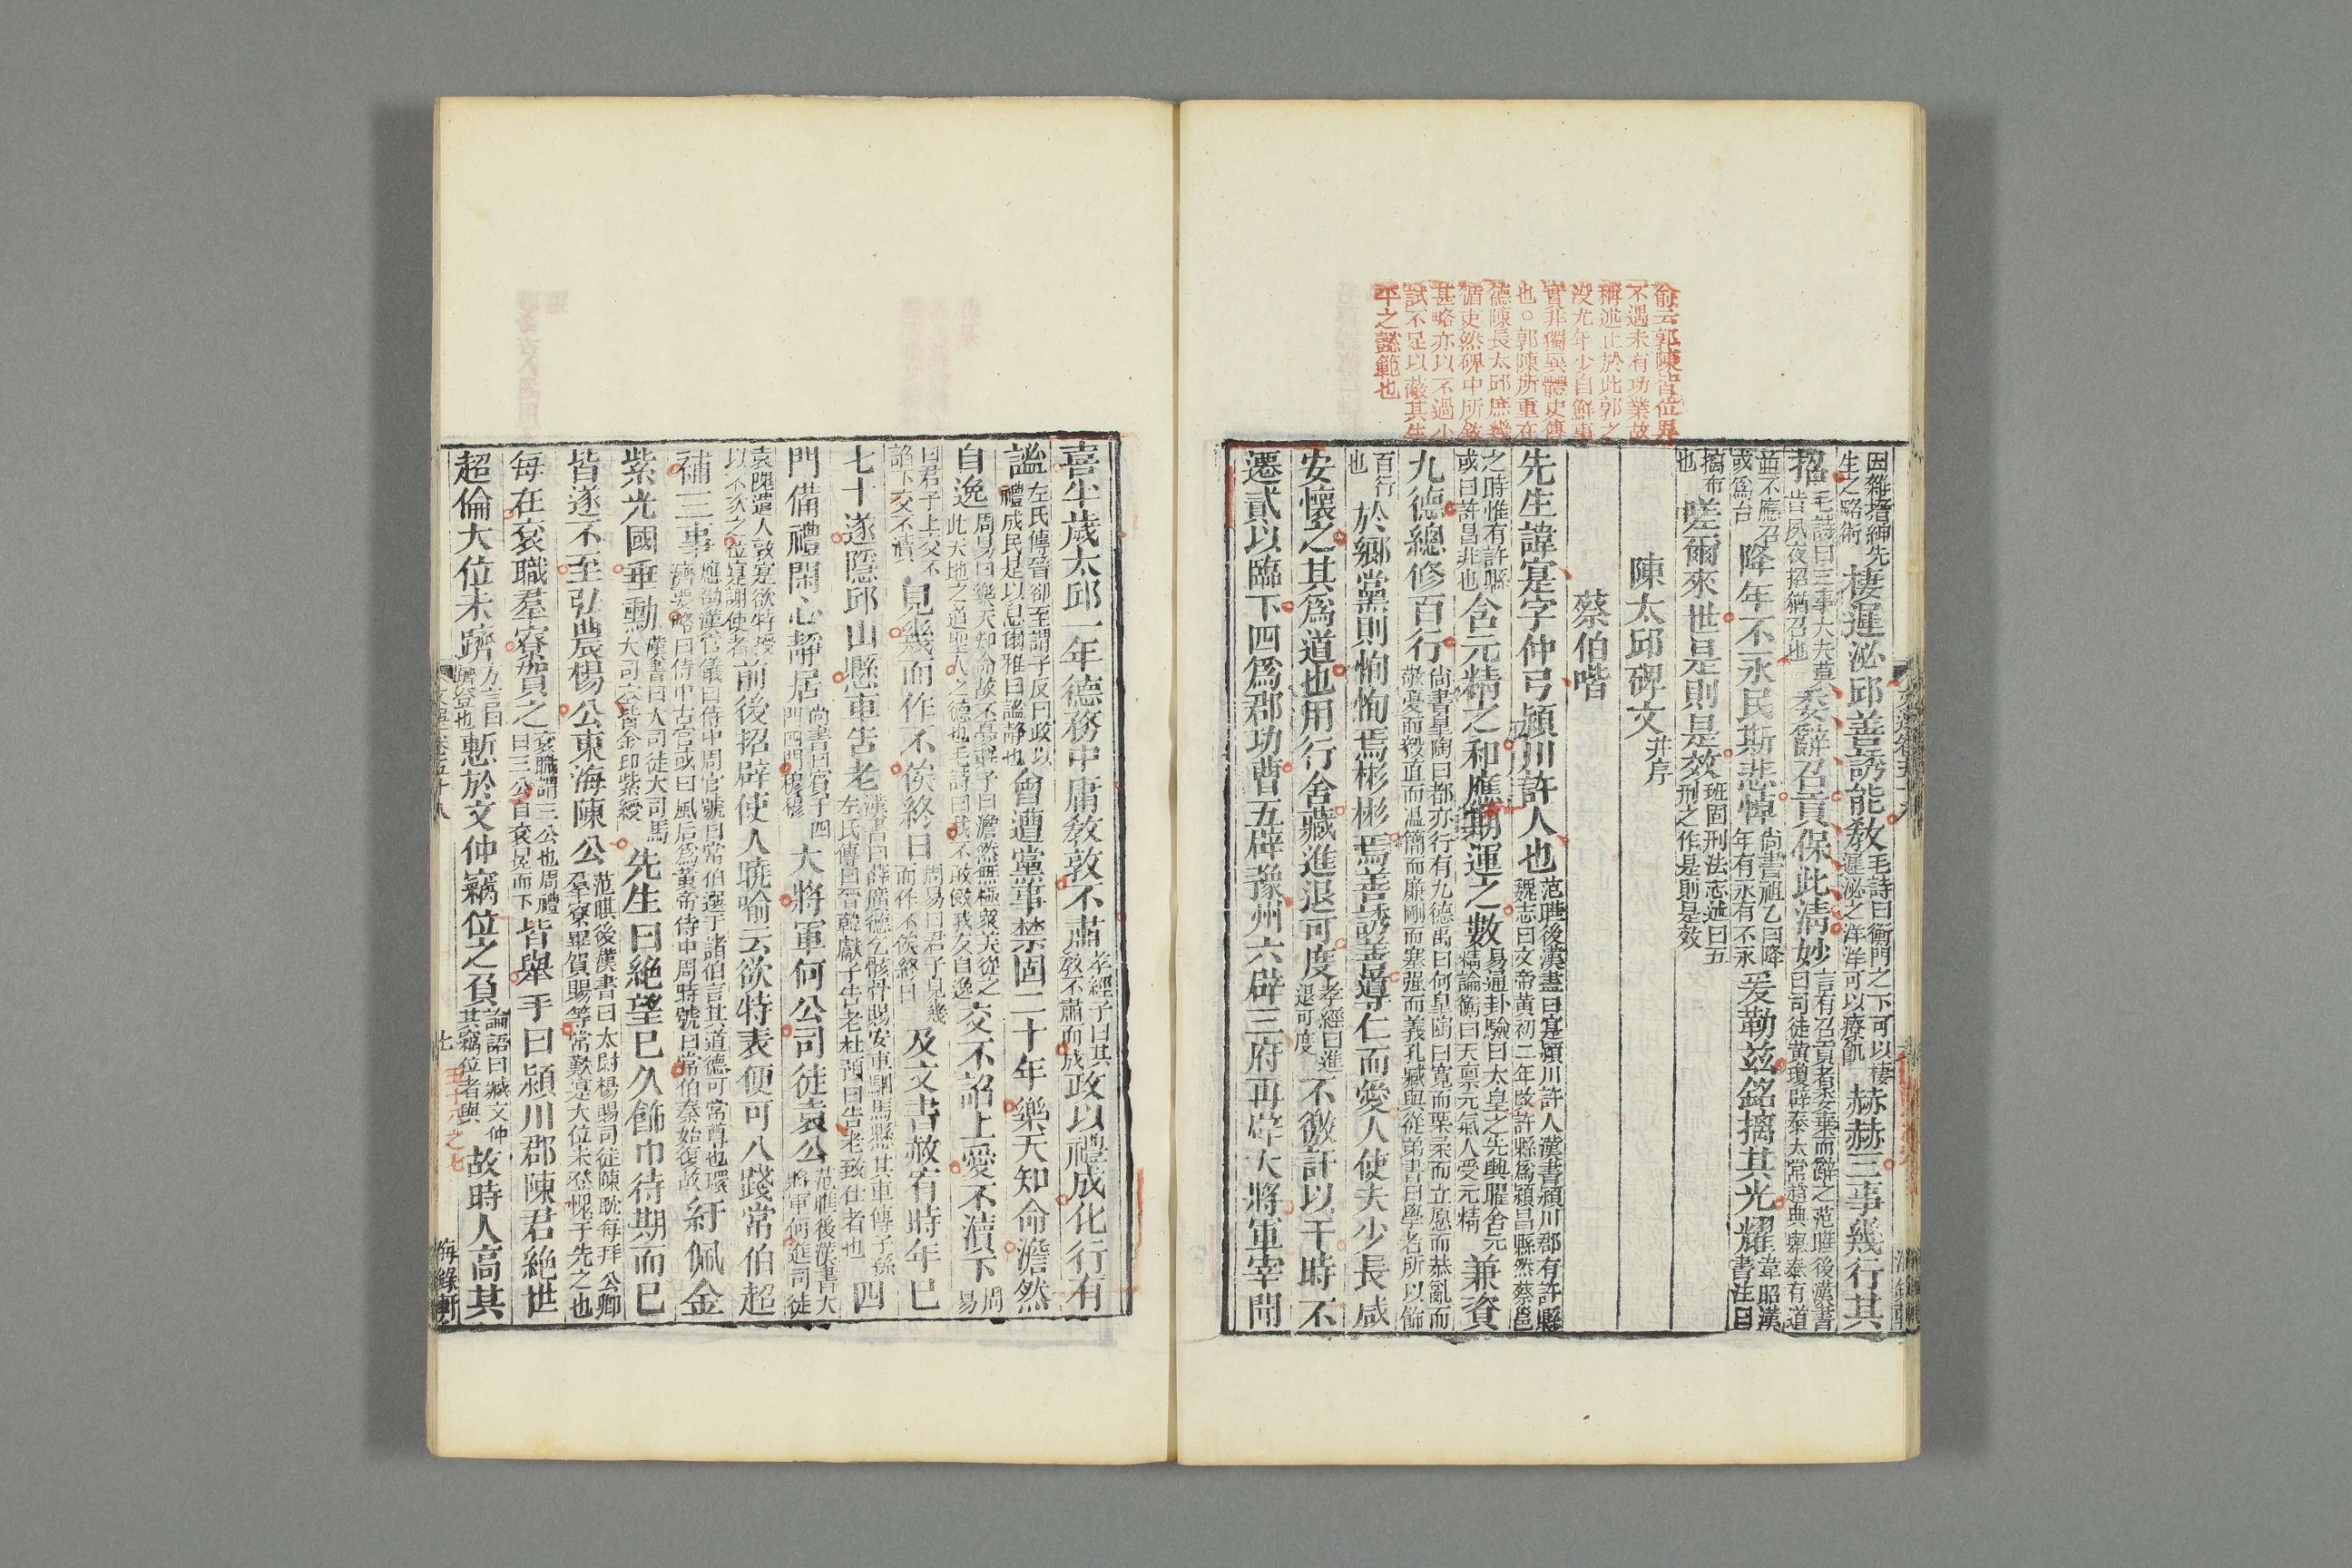 俞云郭陳皆位畀
不遇未有功業故
稱述止於此郭之
沒尤年少自鮮事
實非獨異體史傳
也○郭陳所重在
德陳長太邱庶幾
循吏然碑中所敘
甚略亦以不過小
試不足以蔽其生
平之懿範也
因雜搢紳先
生之略術
棲遲泌邱善誘能敎
毛詩曰衡門之下可以棲
遲泌之洋洋可以療飢
赫赫三事幾行其
招
毛詩曰三事大夫莫
肯夙夜招猶召也
委辭召貢保此淸妙
言有召貢者委棄而辭之范曄後漢書
曰司徒黃瓊辟泰太常趙典舉泰有道
並不應召
或爲台
降年不永民斯悲悼
尚書祖乙曰降
年有永有不永
爰勒兹銘摛其光耀
韋昭漢
書注曰
摛布
也
嗟爾來世是則是效
班固刑法志述曰五
刑之作是則是效
陳太邱碑文
幷序
蔡伯喈
先生諱寔字仲弓潁川許人也
范曄後漢書曰寔潁川許人漢書潁川郡有許縣
魏志曰文帝黃初二年改許縣爲潁昌縣然蔡邕
之時惟有許縣
或曰許昌非也
含元精之和應期運之數
易通卦驗曰太皇之先與耀含元
精論衡曰天禀元氣人受元精
兼資
九德總修百行
尚書皐陶曰都亦行有九德禹曰何皐陶曰寬而栗柔而立愿而恭亂而
敬擾而毅直而溫簡而廉剛而塞强而義孔臧與從弟書曰學者所以飾
百行
也
於鄉黨則恂恂焉彬彬焉善誘善導仁而愛人使夫少長咸
安懷之其爲道也用行舍藏進退可度
孝經曰進
退可度
不徼訐以干時不
遷貳以臨下四爲郡功曹五辟豫州六辟三府再辟大將軍宰聞
喜半歲太邱一年德務中庸敎敦不肅
孝經子曰其
敎不肅而成
政以禮成化行有
謐
左氏傳晉郤至謂子反曰政以
禮成民是以息爾雅曰謐靜也
會遭黨事禁固二十年樂天知命澹然
自逸
周易曰樂天知命故不憂莊子曰澹然無極衆美從之
此天地之道聖人之德也毛詩曰我不敢傚我友自逸
交不諂上愛不瀆下
周
易
曰君子上交不
諂下交不瀆
見幾而作不俟終日
周易曰君子見幾
而作不俟終日
及文書赦宥時年已
七十遂隱邱山懸車告老
漢書曰薛廣德乞骸骨賜安車駟馬懸其車傳子孫
左氏傳曰晉韓獻子告老杜預曰告老致仕者也
四
門備禮閑心靜居
尚書曰賓于四
門四門穆穆
大將軍何公司徒袁公
范曄後漢書大
將軍何進司徒
袁隗遣人敦寔欲特授
以不次之位寔謝使者
前後招辟使人曉喻云欲特表便可入踐常伯超
補三事
應劭漢官儀曰侍中周官號曰常伯選于諸伯言其道德可常尊也環
濟要略曰侍中古官或曰風后爲黃帝侍中周時號曰常伯秦始復故
紆佩金
紫光國垂勳
漢書曰大司徒大司馬
大司空皆金印紫綬
先生曰絶望已久飾巾待期而已
皆遂不至弘農楊公東海陳公
范曄後漢書曰太尉楊賜司徒陳耽每拜公卿
羣寮畢賀賜等常歎寔大位未登愧于先之也
每在衮職羣寮賀之
衮職謂三公也周禮
曰三公自衮冕而下
皆舉手曰潁川郡陳君絶世
超倫大位未躋
方言曰
躋登也
慙於文仲竊位之負
論語曰臧文仲
其竊位者與
故時人高其
文選卷五十八
七
五十八之七
海錄軒